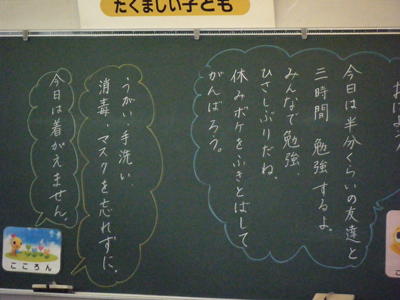 たくましい子ども
おはよう
今日は半分くらいの友達と
三時間 勉強するよ。
みんなで勉強、
ひさしぶりだね。
休みボケをふきとばして
がんばろう。
うがい、手洗い、
消毒、マスクを忘れずに。
今日は着がえません。
こころん